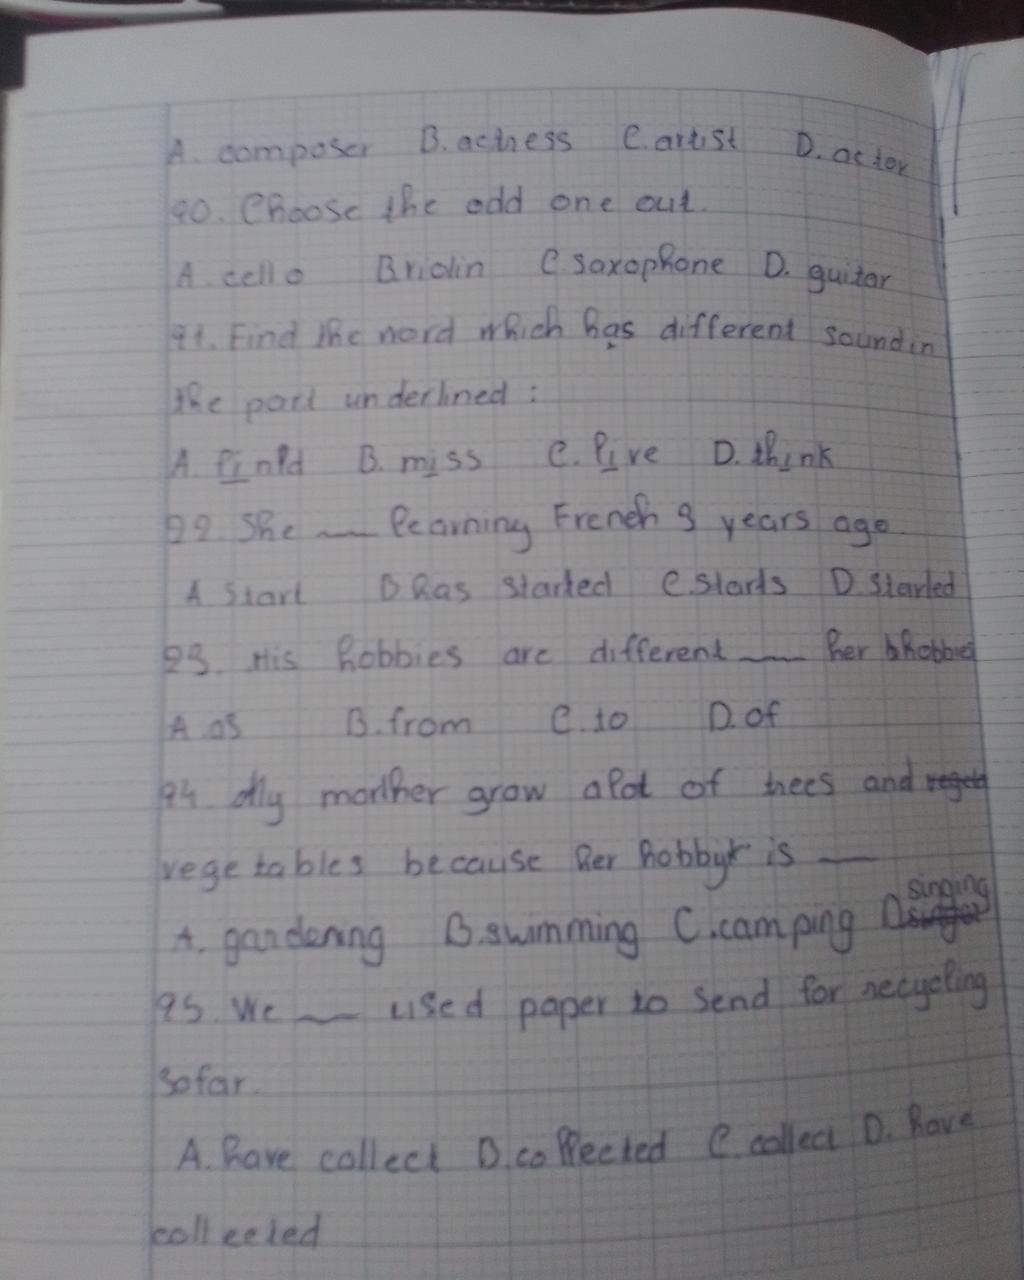 A. composer B. actress C. artist D. actor
90. Choose the odd one out.
A. cello B violin C. saxophone D. guitar
91. Find the word which has different sound in
the part underlined:
A. find B. miss C. live D. think
92. She __ learning French 3 years ago
A start B has started C. starts D. started
93. His hobbies are different __ her hobbies
A. as B. from C. to D. of
94. My morther grow alot of trees and
vegetables because her hobby is __
A. gardening B. swimming C. camping D singing
95. We __ used paper to send for recycling
sofar.
A. have collect B. collected C. collect D. have
collected